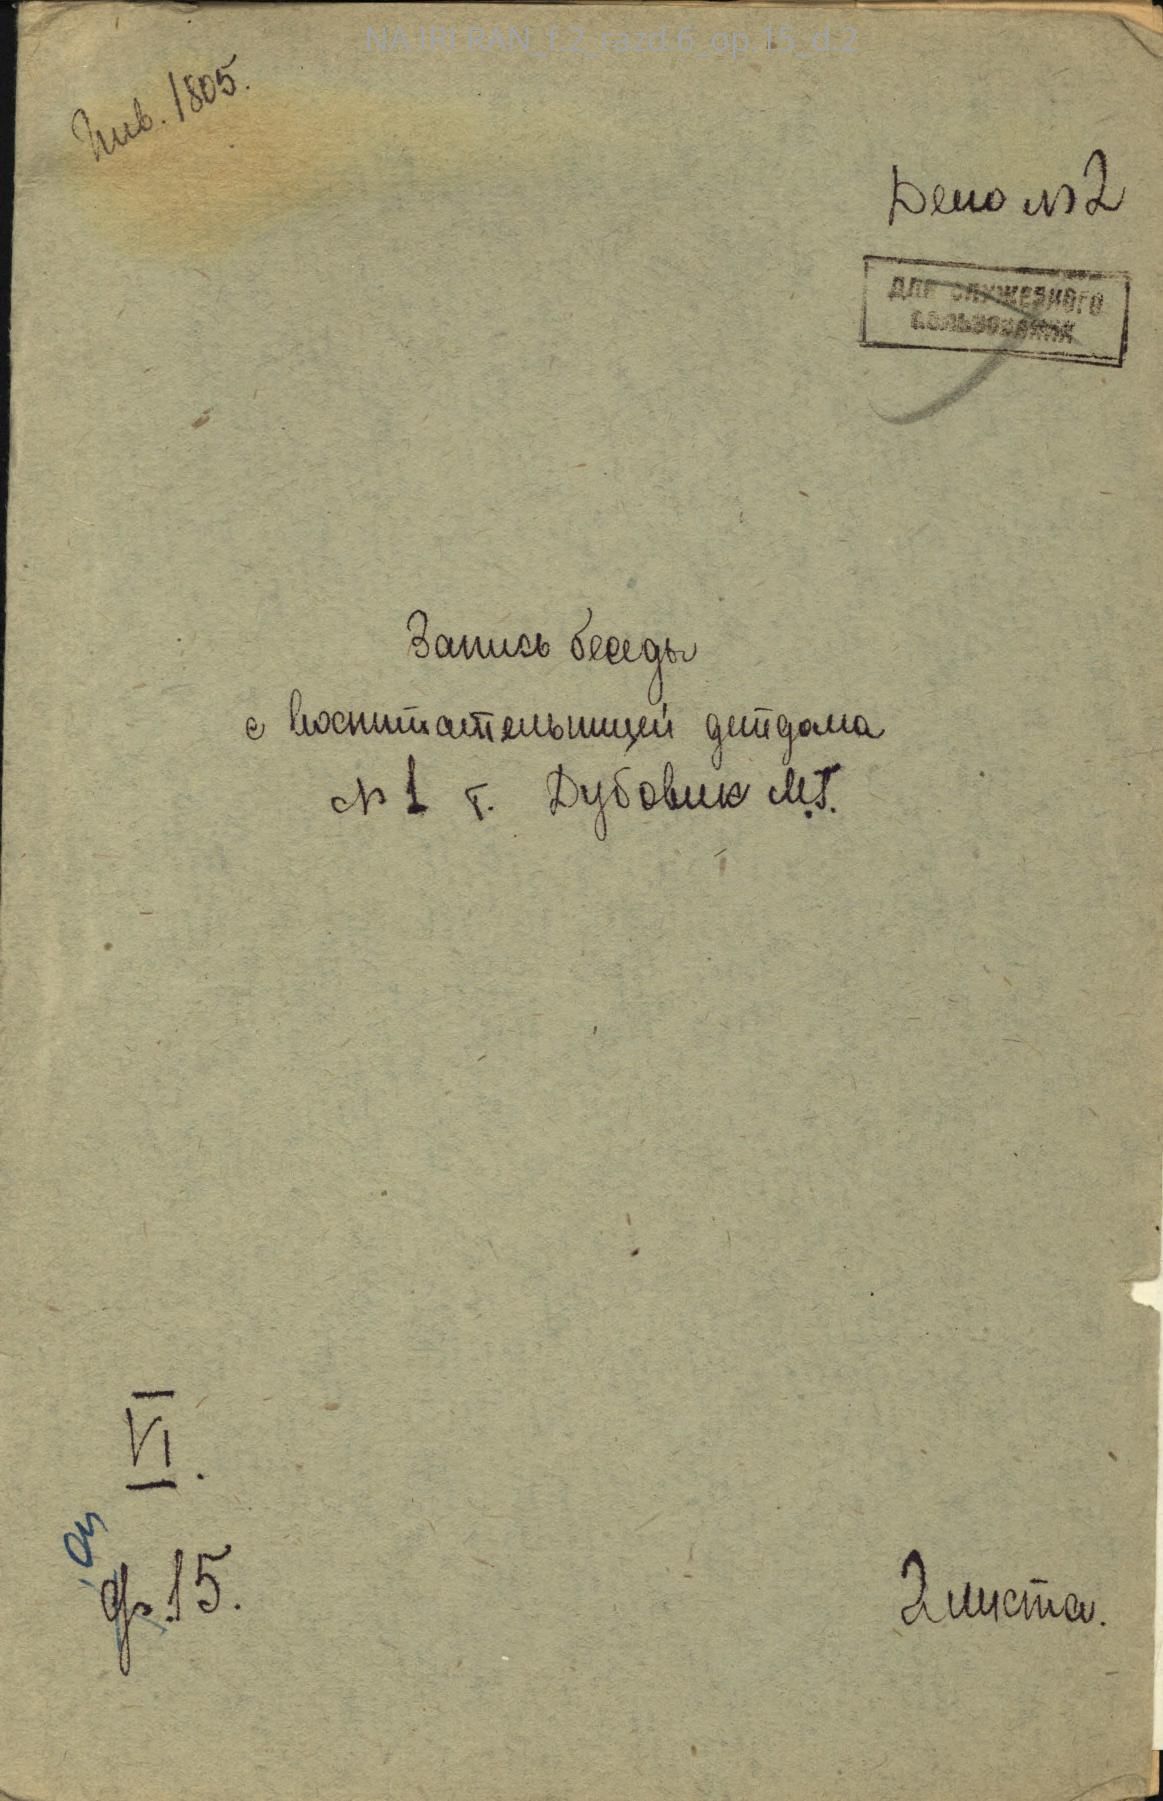 NA IRI RAN_f.2_razd.6_op.15_d.2
Инв. 1805.
Дело № 2
ДЛЯ СЛУЖЕБНОГО
ПОЛЬЗОВАНИЯ
Запись беседы
с воспитательницей детдома
№ 1 т. Дубовик М.Г.
VI.
оп
ф. 15.
2 листа.